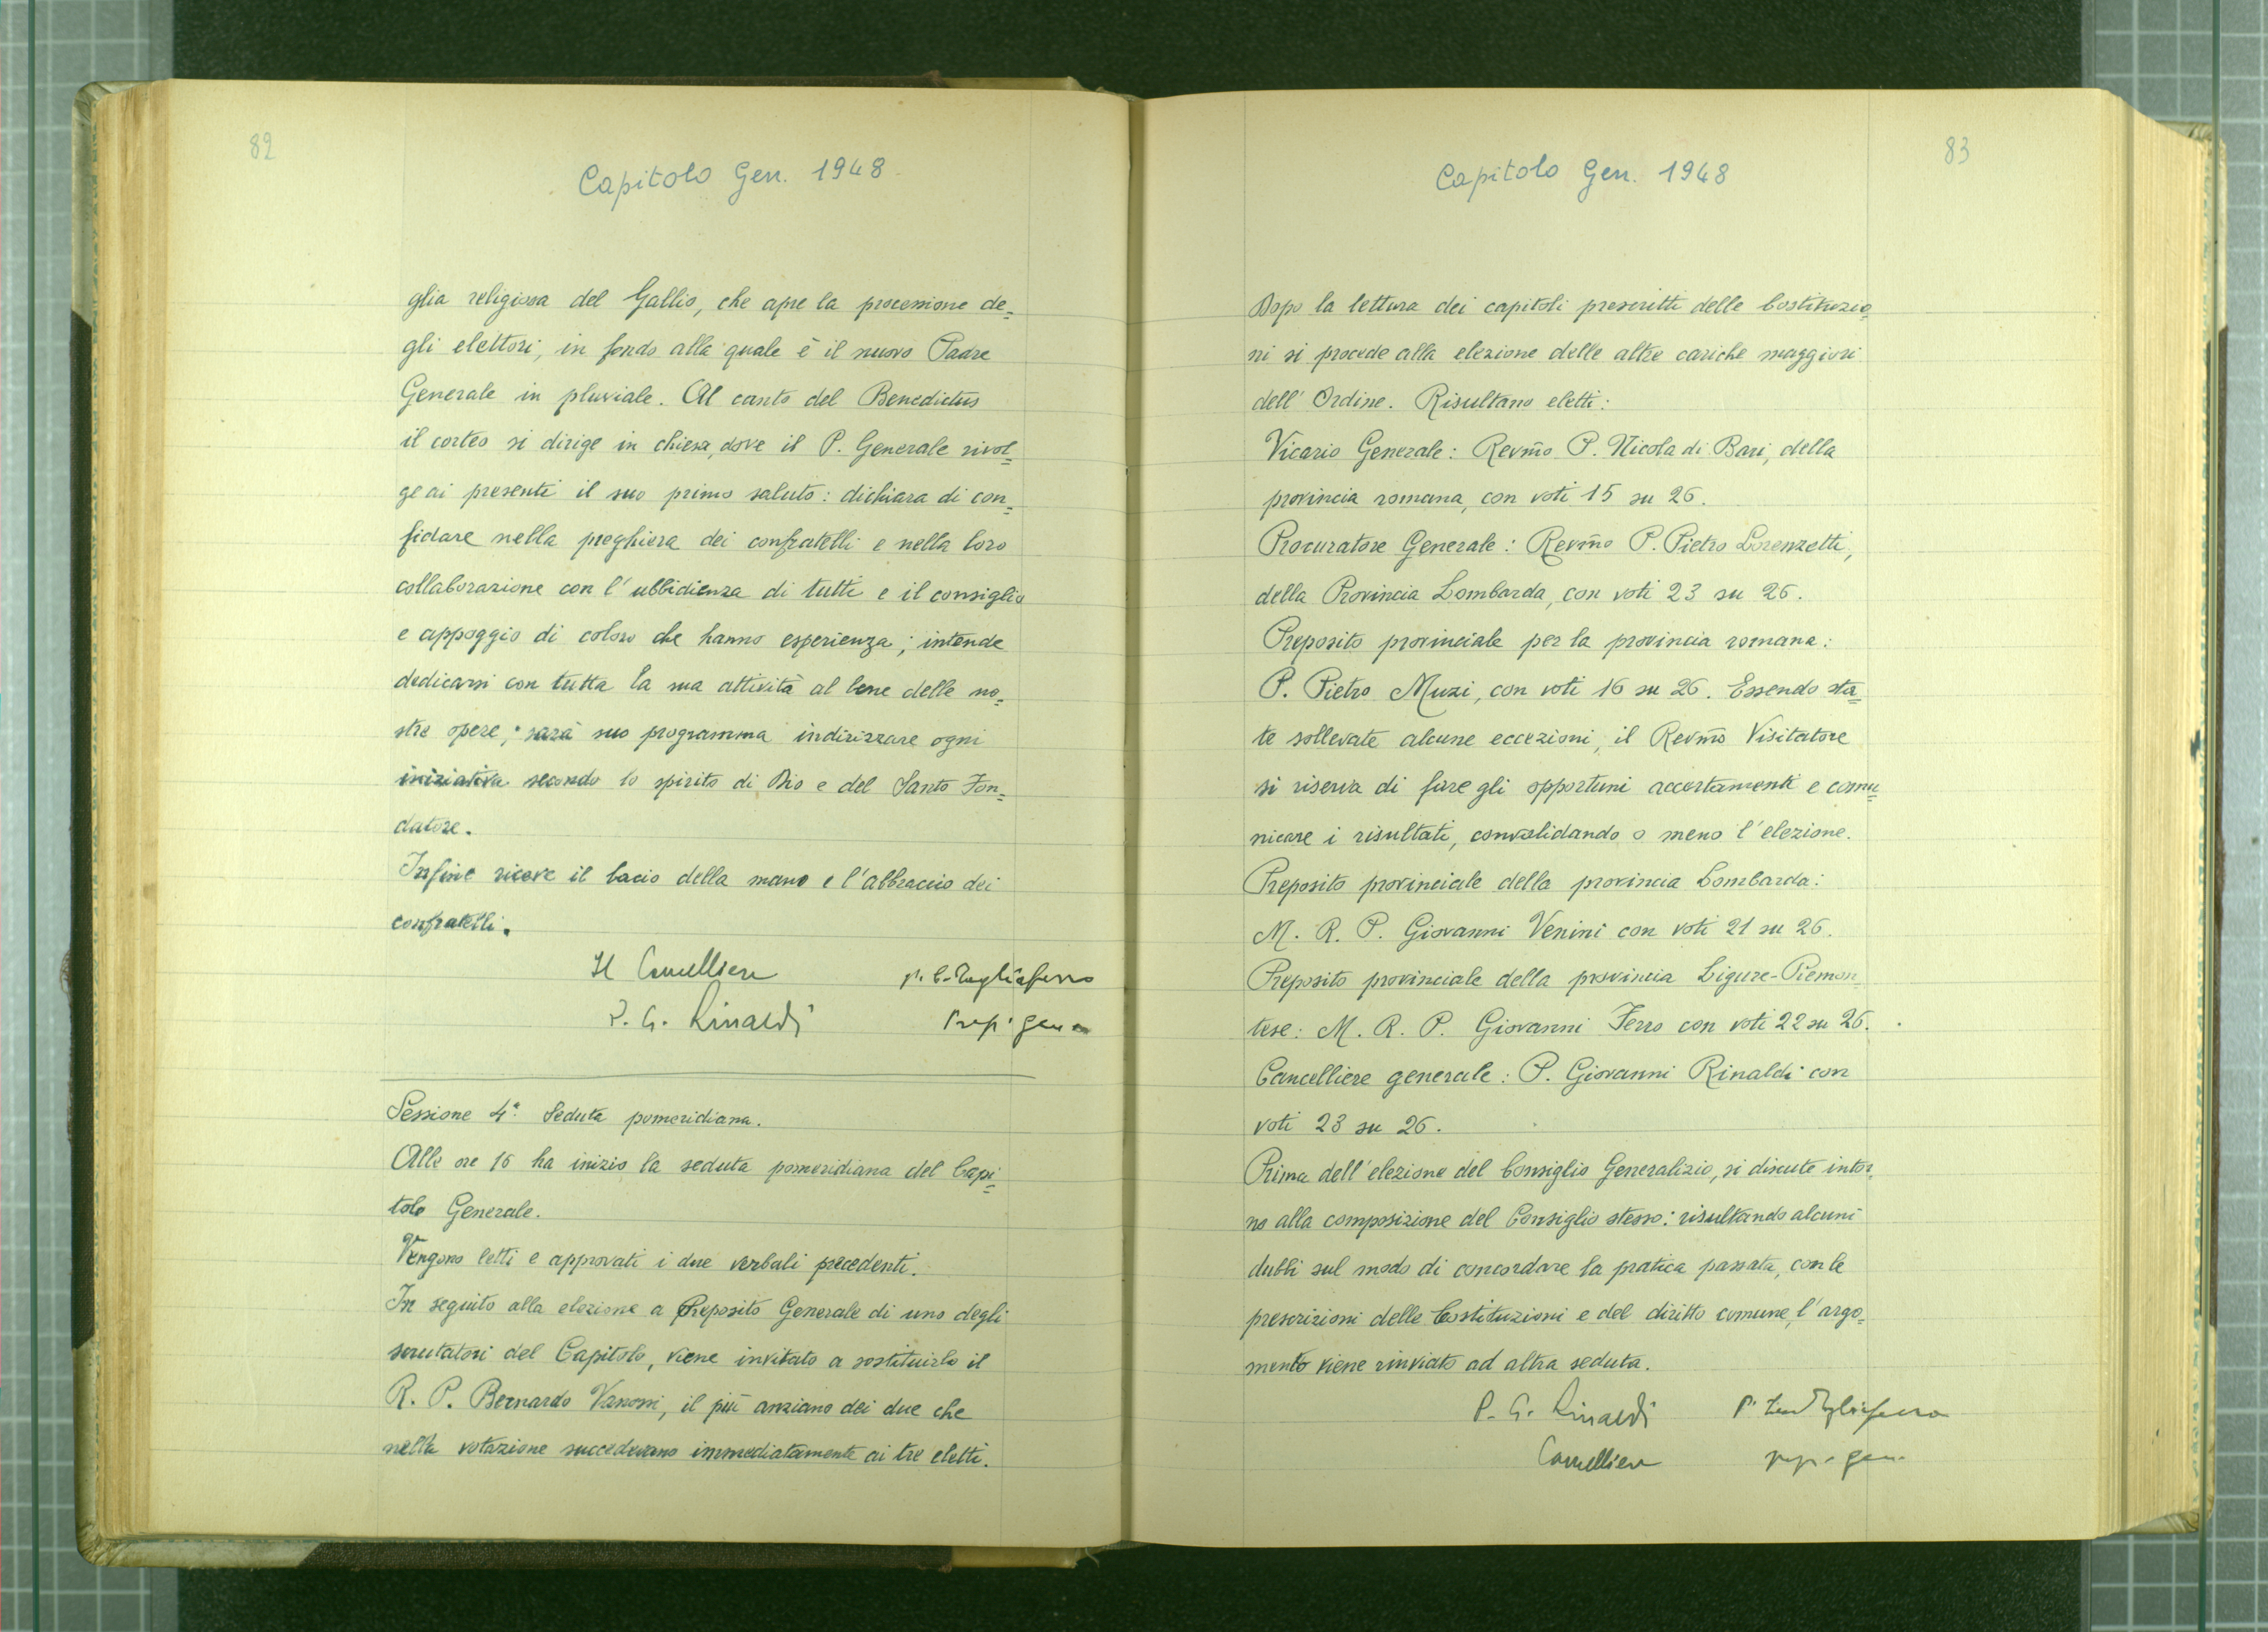 82
Capitolo Gen. 1948
glia religiosa del Gallio, che apre la processione de=
gli elettori, in fondo alla quale è il nuovo Padre
Generale in pluviale. Al canto del Benedictus
il corteo si dirige in chiesa, dove il P. Generale rivol=
ge ai presenti il suo primo saluto: dichiara di con=
fidare nella preghiera dei confratelli e nella loro
collaborazione con l'ubbidienza di tutti e il consiglio
e appoggio di coloro che hanno esperienza; intende
dedicarsi con tutta la sua attività al bene delle no=
stre opere; sarà suo programma indirizzare ogni
iniziativa secondo lo spirito di Dio e del Santo Fon=
datore.
Infine riceve il bacio della mano e l'abbraccio dei
confratelli.
Il Cancelliere
P. G. Rinaldi
p. C. Tagliaferro
Prep. gen
Sessione 4ª. Seduta pomeridiana.
Alle ore 16 ha inizio la seduta pomeridiana del Capi=
tolo Generale.
Vengono letti e approvati i due verbali precedenti.
In seguito alla elezione a Preposito Generale di uno degli
scrutatori del Capitolo, viene invitato a sostituirlo il
R. P. Bernardo Vanossi, il più anziano dei due che
nella votazione succedevano immediatamente ai tre eletti.
83
Capitolo Gen. 1948
Dopo la lettura dei capitoli prescritti delle Costituzio=
ni si procede alla elezione delle altre cariche maggiori
dell'Ordine. Risultano eletti:
Vicario Generale: Revm̃o P. Nicola di Bari, della
provincia romana, con voti 15 su 26.
Procuratore Generale: Revm̃o P. Pietro Lorenzetti,
della Provincia Lombarda, con voti 23 su 26.
Preposito provinciale per la provincia romana:
P. Pietro Muzi, con voti 16 su 26. Essendo sta=
te sollevate alcune eccezioni, il Revm̃o Visitatore
si riserva di fare gli opportuni accertamenti e comu=
nicare i risultati, convalidando o meno l'elezione.
Preposito provinciale della provincia Lombarda:
M. R. P. Giovanni Venini con voti 21 su 26.
Preposito provinciale della provincia Ligure-Piemon=
tese: M. R. P. Giovanni Ferro con voti 22 su 26.
Cancelliere generale: P. Giovanni Rinaldi con
voti 23 su 26.
Prima dell'elezione del Consiglio Generalizio, si discute intor=
no alla composizione del Consiglio stesso: risultando alcuni
dubbi sul modo di concordare la pratica passata, con le
prescrizioni delle Costituzioni e del diritto comune, l'argo=
mento viene rinviato ad altra seduta.
P. G. Rinaldi
Cancelliere
P. Tagliaferro
prep. gen.